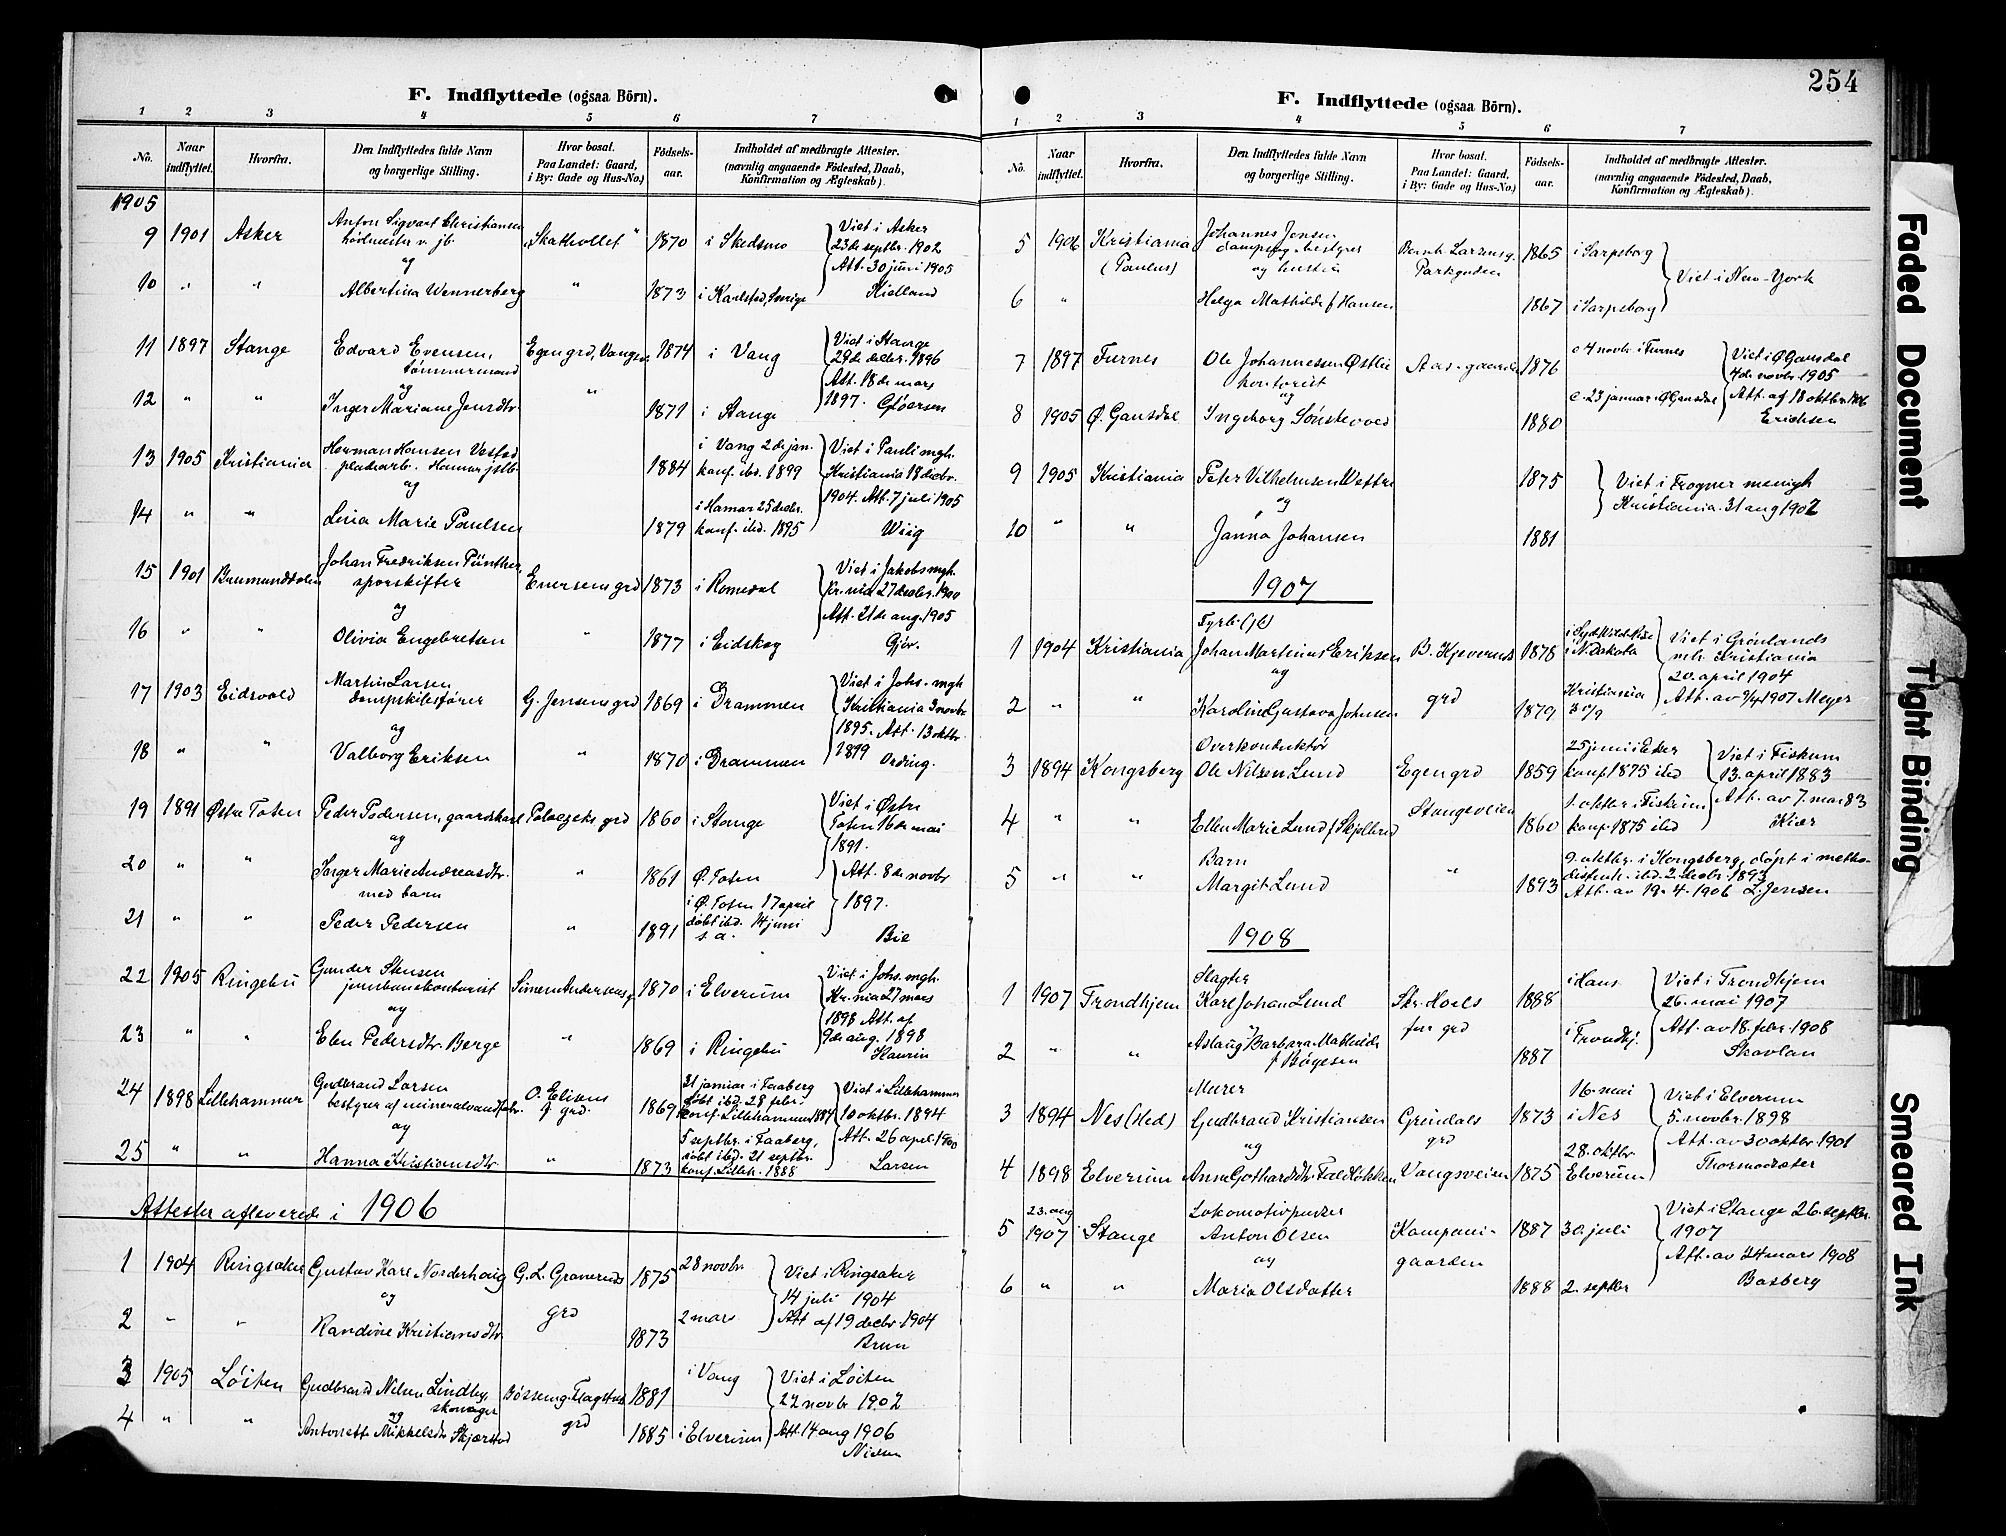 F. Indflyttede (ogsaa Börn).
1 2 3 4 5 6 7
No. Naar indflyttet. Hvorfra. Den Indflyttedes fulde Navn og borgerlige Stilling. Hvor bosat. Paa Landet: Gaard, i By: Gade og Hus-No. Födsels-aar. Indholdet af medbragte Attester. (navnlig angaaende Födested, Daab, Konfirmation og Ægteskab).
1905
9 1901 Asker Anton Sigvart Christiansen "Skathollet" 1870 i Skedsmo Viet i Asker
23de septbr. 1902
og Att. 30 juni 1905
10 " " Albertina Wennerberg " 1873 i Karlstad, Sverige Kielland
11 1897 Stange Edvard Evensen, Egen grd, Vangsv. 1874 i Vang Viet i Stange
tømmermand 29de decbr. 1896
og Att. 18de mars
12 " " Inger Mariane Jensdtr. " 1871 i Stange 1897. Gløersen
13 1905 Kristiania Herman Hansen 1884 i Vang 2de jan. konf. ibd. 1899 Viet i Pauli mgh.
Kristiania 18 decbr.
og 1904. Att. 7 juli 1905
14 " " Lina Marie Paulsen 1879 i Hamar 25 decbr. konf. ibd. 1895 Wiig
15 1901 Brumunddalen Johan Fredriksen Pünther, Eversens grd 1873 i Romedal Viet i Jakobs mgh.
sporskifter Kr.nia 27 decbr. 1900
og Att. 21de aug. 1905
16 " " Olivia Engebretsen " 1877 i Eidskog Gjør.
17 1903 Eidsvold Martin Larsen G. Jensens grd 1869 i Drammen Viet i Johs. mgh
dampskibsfører Kristiania 3 novbr
og 1895. Att. 13 oktbr.
18 " " Valborg Eriksen " 1870 i Drammen 1899 Ording.
19 1891 Østre Toten Peder Pedersen, gaardskarl Polaczeks grd 1860 i Stange Viet i Østre
og Toten 16de mai
1891.
20 " " Inger Marie Andreasdtr. " 1861 Ø. Toten Att. 8de novbr
med barn 1897.
21 " " Peder Pedersen " 1891 i Ø. Toten 17 april døbt ibd. 14 juni s.a. Bie
22 1905 Ringebu Gunder Stensen Simen Andersens g. 1870 i Elverum Viet i Johs. mgh.
jernbanekontorist Kr.nia 27 mars
og 1898 Att. af
23 " " Elen Pedersdtr. Berge " 1869 i Ringebu 9de aug. 1898
Kaurin
24 1898 Lillehammer Gudbrand Larsen O. Eliesens grd. 1869 21 januar i Faaberg døbt ibd. 28 febr. konf. Lillehammer 1884 Viet i Lillehammer
bestyrer af mineralvandfabr. 10 oktbr. 1894
og Att. 26 april 1900
25 " " Hanna Kristiansdtr. " 1873 5 septbr. i Faaberg, døbt ibd. 21 septbr. konf. Lilleh. 1888 Larsen
Attester afleverede i 1906
1 1904 Ringsaker Gustav Karl Norderhaug G. L. Graneruds 1875 28 novbr Viet i Ringsaker
og grd 14 juli 1904
2 " " Randine Kristiansdtr. 1873 2 mars Att af 19 decbr 1904
Brun
3 1905 Løiten Gudbrand Nilsen Lindby, Bøsseng. Flagstad 1881 i Vang Viet i Løiten
og skomager grd 22 novbr 1902
4 " " Antonette Mikkelsdtr Skjærstad 1885 i Elverum Att. 14 aug 1906
Nielsen
254
F. Indflyttede (ogsaa Börn).
1 2 3 4 5 6 7
No. Naar indflyttet. Hvorfra. Den Indflyttedes fulde Navn og borgerlige Stilling. Hvor bosat. Paa Landet: Gaard, i By: Gade og Hus-No.) Födsels-aar. Indholdet af medbragte Attester. (navnlig angaaende Födested, Daab, Konfirmation og Ægteskab).
5 1906 Kristiania Johannes Jensen Bernh. Larsensg. 1865 i Sarpsborg
(Paulus) dampsag-bestyrer Parkgaden Viet i New-York
og hustru
6 " Helga Mathilde f Hansen 1867 i Sarpsborg
7 1897 Furnes Ole Johannesen Østlie Aas-gaarden 1876 4 novbr. i Furnes Viet i Ø Gausdal
kontorist 4de novbr 1905
og Att. af 18 oktbr. 1906
8 1905 Ø. Gausdal Ingeborg Sønstevold 1880 23 januar Ø Gausdal Erichsen
9 1905 Kristiania Peter Vilhelmsen Wettre 1875 Viet i Frogner menigh
og Kristiania 31 aug 1902
10 " " Janna Johansen 1881
1907
Fyrb. (jb)
1 1904 Kristiania Johan Martinus Eriksen B. Kjeveruds 1878 i N. Dakota Viet i Grønlands
og mh. Kristiania
20. april 1904
2 " " Karoline Gustava Johnsen grd 1879 Kristiania Att. av 9/4 1907 Meyer
Overkonduktør
3 1894 Kongsberg Ole Nilsen Lund Egen grd 1859 25 juni i Eker konf. 1875 ibd Viet i Fiskum
13. april 1883
4 " " Ellen Marie Lund f Skjøllerud Stangeveien 1860 1. oktbr i Fiskum konf. 1875 ibd Att. av 7. mai 83
Kiær
Barn
5 " " Margit Lund " 1893 9. oktbr. i Kongsberg, døpt i metho-
distmh. ibd. 2 decbr. 1893
Att. av 19-4-1906 L. Jensen
1908
Slagter
1 1907 Trondhjem Karl Johan Lund Skr. Hoels 1888 i Hans Viet i Trondhjem
26. mai 1907
2 " " Aslaug Barbara Mathilde grd 1887 i Trondhj. Att. av 18. febr. 1908
f Bøgesen Skavlan
Murer
3 1894 Nes (Hed) Gudbrand Kristiansen Grindals 1873 16. mai i Nes Viet i Elverum
og grd 5. novbr. 1898
Att. av 30 oktbr. 1901
4 1898 Elverum Anne Gothardsdtr. Faldløkken Vangsveien 1875 28. oktbr Elverum Thormodsæter
Lokomotivpudser
5 23. aug 1907 Stange Anton Olsen Kompani- 1887 30 juli Viet i Stange 26. septbr.
og gaarden 1907
Att. av 24 mars 1908
6 " " Maria Olsdatter 1888 2. septbr Basberg
Faded Document
Tight Binding
Smeared Ink